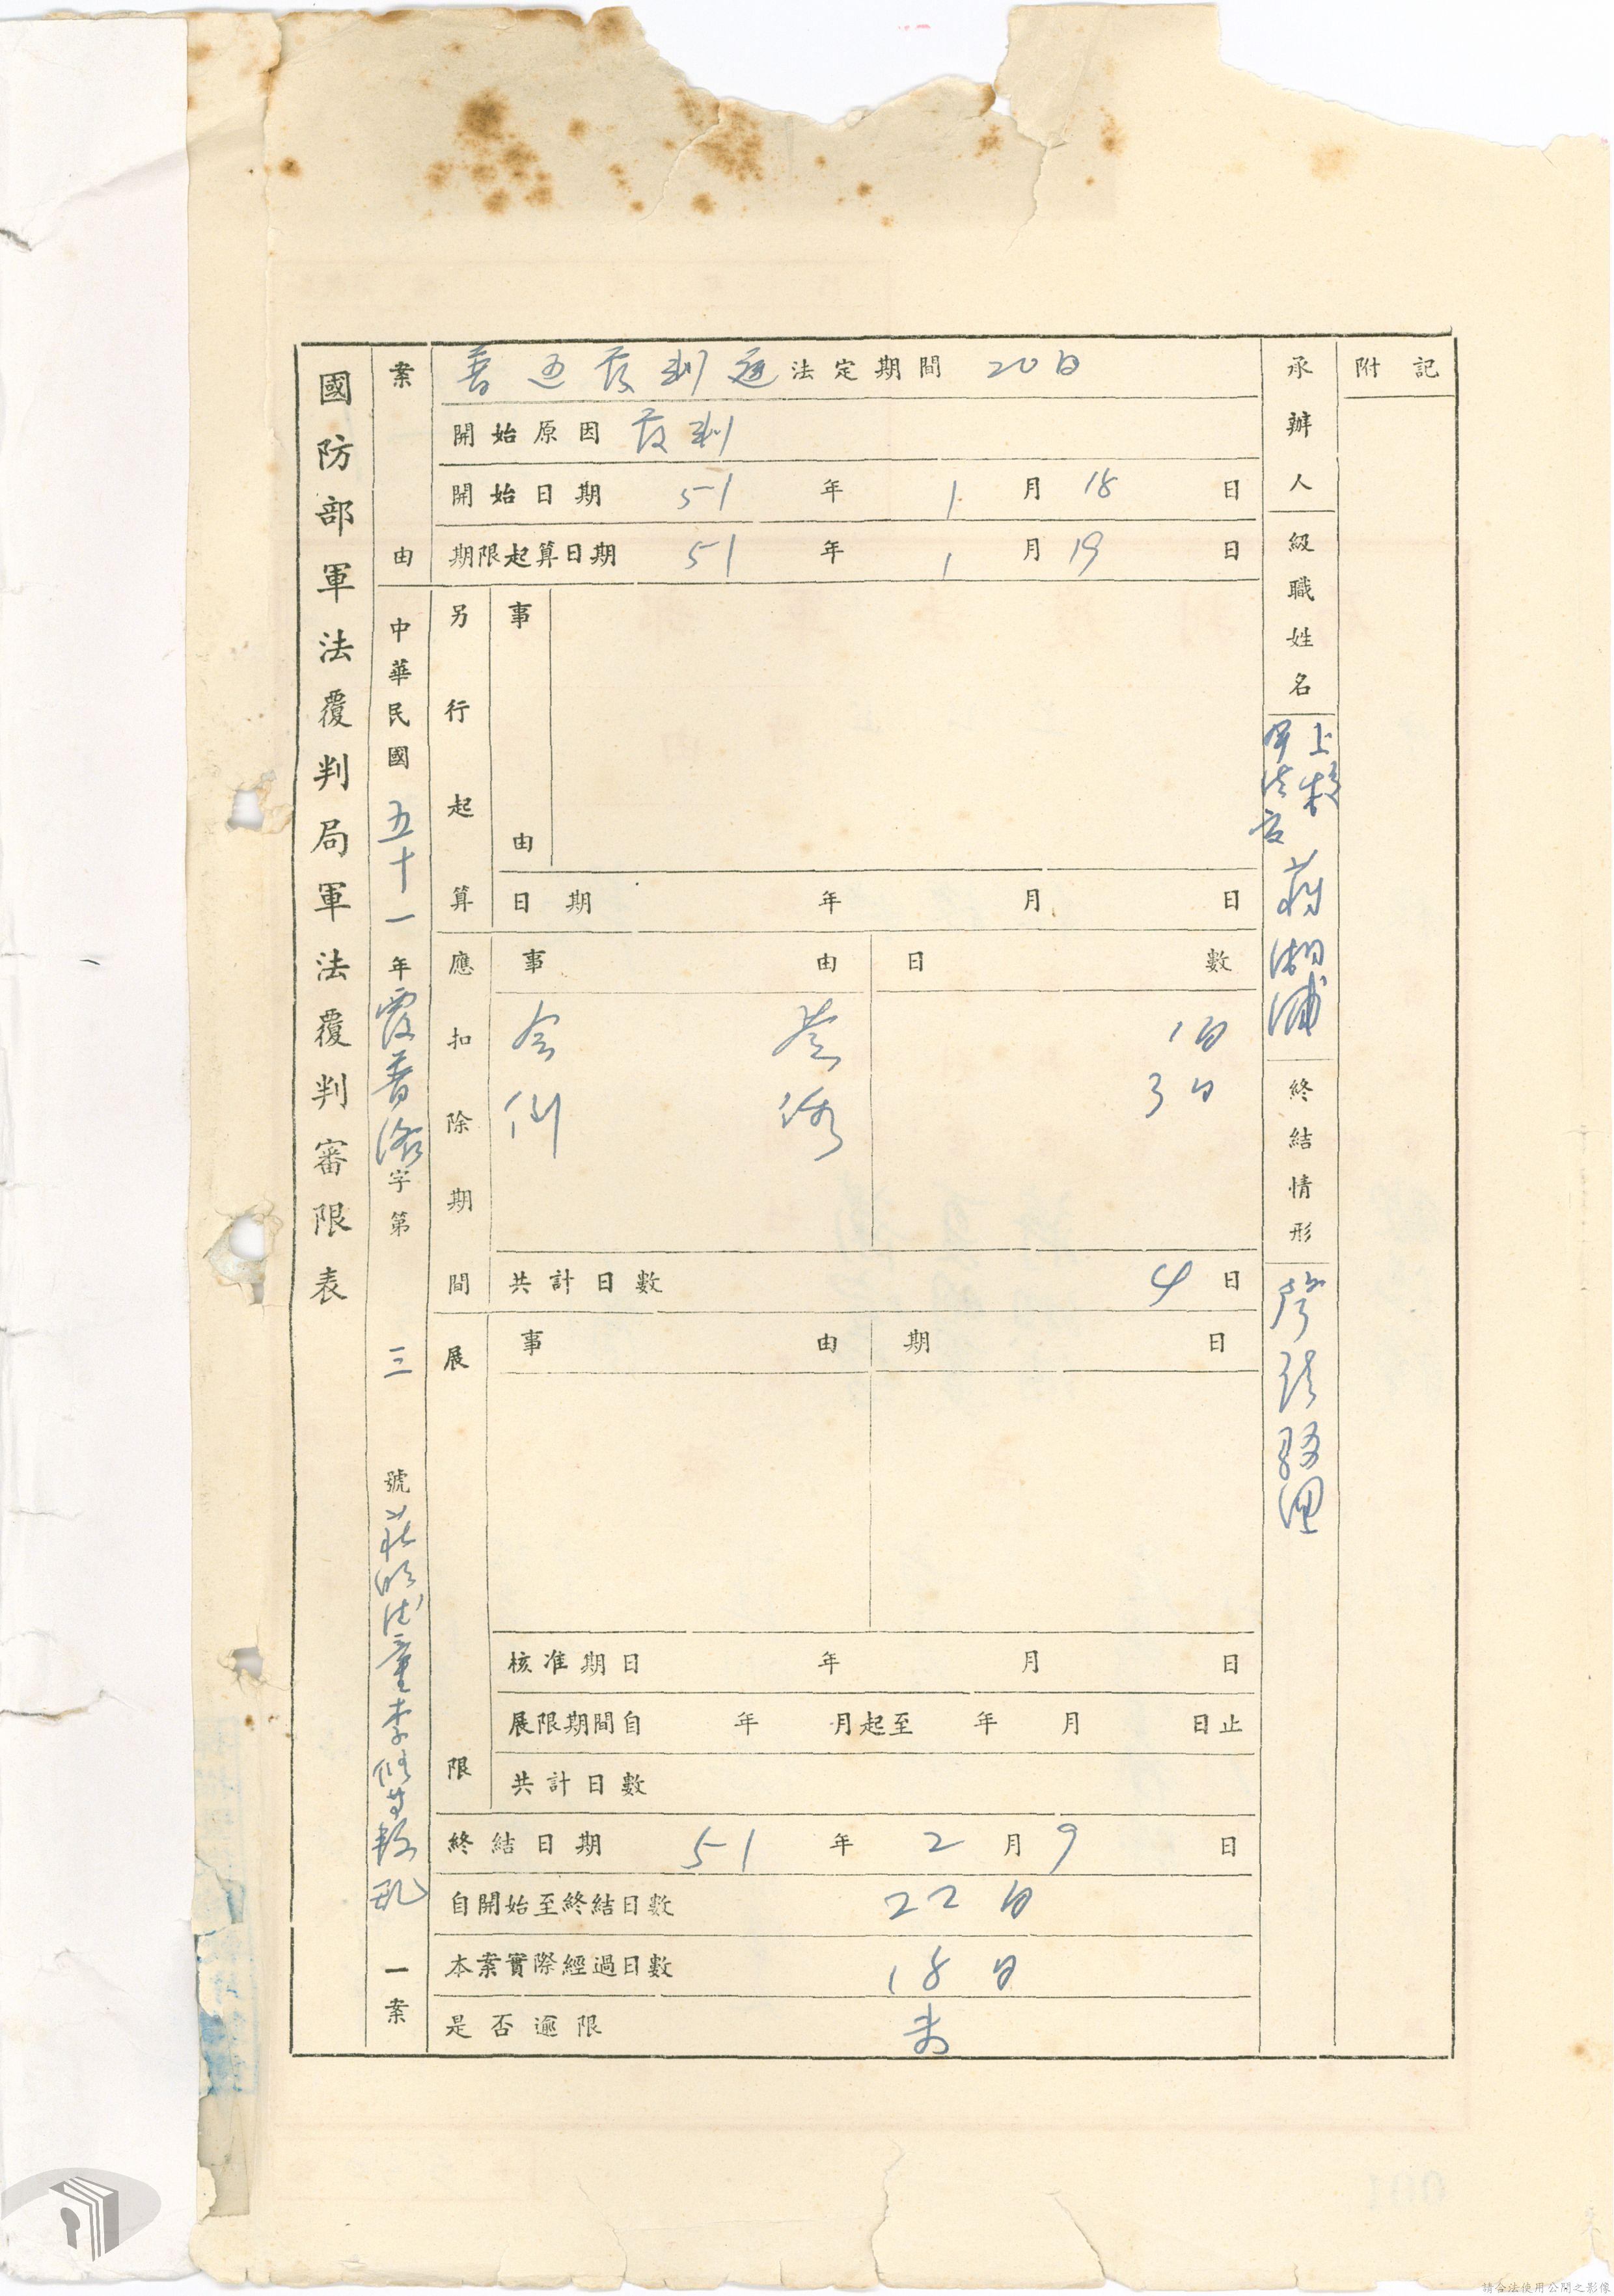 國防部軍法覆判局軍法覆判審限表
案由
中華民國五十一年覆普
字第三號
一案
普通覆判庭法定期間 20日
開始原因 覆判
開始日期 51年1月18日
期限起算日期 51年1月19日
另行起算
事由
日期 年 月 日
應扣除期間
事由 日數
1日
例假 3日
共計日數 4日
展限
事由 期日
核准期日 年 月 日
展限期間自 年 月起至 年 月 日止
共計日數
終結日期 51年2月9日
自開始至終結日數 22日
本案實際經過日數 18日
是否逾限 未
承辦人級職姓名
上校
軍法官
蔣湖浦
終結情形
附記
請合法使用公開之影像